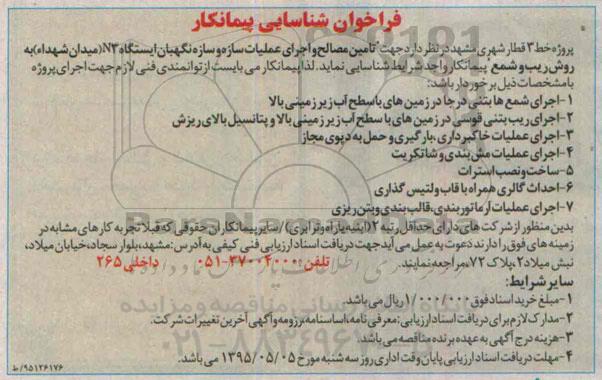 فراخوان شناسایی پیمانکار
پروژه خط ۳ قطار شهری مشهد در نظر دارد جهت "تامین مصالح و اجرای عملیات سازه و سازه نگهبان ایستگاه N3 (میدان شهداء) به
روش ریب و شمع" پیمانکار واجد شرایط شناسایی نماید. لذا پیمانکار می بایست از توانمندی فنی لازم جهت اجرای پروژه
با مشخصات ذیل برخوردار باشد:
۱- اجرای شمع ها بتنی درجا در زمین های با سطح آب زیرزمینی بالا
۲- اجرای ریب بتنی قوسی در زمین های با سطح آب زیرزمینی بالا و پتانسیل بالای ریزش
۳- اجرای عملیات خاکبرداری، بارگیری و حمل به دپوی مجاز
۴- اجرای عملیات مش بندی و شاتکریت
۵- ساخت و نصب استرات
۶- احداث گالری همراه با قاب و لتیس گذاری
۷- اجرای عملیات آرماتوربندی، قالب بندی و بتن ریزی
بدین منظور از شرکت های دارای حداقل رتبه ۲ (ابنیه یا راه و ترابری) / سایر پیمانکاران حقوقی که قبلا تجربه کارهای مشابه در
زمینه های فوق را دارند دعوت به عمل می آید جهت دریافت اسناد ارزیابی فنی کیفی به آدرس: مشهد، بلوار سجاد، خیابان میلاد،
نبش میلاد۲، پلاک ۷۲، مراجعه نمایند. تلفن: ۳۷۰۰۴۰۰۰-۰۵۱ داخلی ۲۶۵
سایر شرایط:
۱- مبلغ خرید اسناد فوق ۱/۰۰۰/۰۰۰ ریال می باشد.
۲- مدارک لازم برای دریافت اسناد ارزیابی: معرفی نامه، اساسنامه، رزومه و آگهی آخرین تغییرات شرکت.
۳- هزینه درج آگهی به عهده برنده مناقصه می باشد.
۴- مهلت دریافت اسناد ارزیابی پایان وقت اداری روز سه شنبه مورخ ۱۳۹۵/۰۵/۰۵ می باشد.
۹۵۱۲۶۱۷۶/ط
ParsNamadData
۰۲۱-۸۸۳۴۹۶